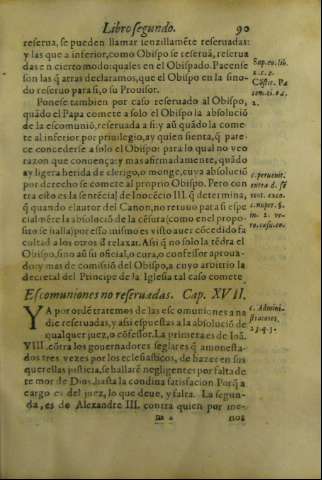 Libro segundo. 90
reserua, se pueden llamar senzillamẽte reseruadas:
y las que a inferior, como Obispo se reseruã, reserua
das en cierto modo: quales en el Obispado Pacense
son las q̃ arras declaramos, que el Obispo en la sino-
do reseruo para si, o su Prouisor.
Ponese tambien por caso reseruado al Obispo,
quãdo el Papa comete a solo el Obispo la absoluciõ
de la escomuniõ, reseruada a si: y aũ quãdo la come
te al inferior por priuilegio, ay quien sienta, q̃ pare
ce concederse a solo el Obispo: para lo qual no veo
razon que conuença: y mas afirmadamente, quãdo
ay ligera herida de clerigo, o monge, cuya absoluciõ
por derecho se comete al proprio Obispo. Pero con
tra esto es la senrẽcia de Inocẽcio III. q̃ determina,
q̃ quando el autor del Canon, no retuuo para si espe
cialmẽte la absoluciõ de la cẽsura (como en el propo
sito se halla) por esso mismo es visto auer cõcedido fa
cultad a los otros de relaxar. Assi q̃ no solo la tẽdra el
Obispo, sino aũ su oficial, o cura, o confessor aproua-
do: y mas de comissiõ del Obispo, a cuyo arbitrio la
decretal del Principe de la Iglesia tal caso comete
Escomuniones no reseruadas. Cap. XVII.
YA por ordẽ trataremos de las escomuniones a na
die reseruadas, y assi espuestas a la absoluciõ de
qualquer juez, o cõfessor. La primera es de Ioã.
VIII. cõtra los gouernadores seglares q̃ amonesta-
dos tres vezes por los eclesiasticos, de hazer en sus
querellas justicia, se hallarẽ negligentes por falta de
temor de Dios, hasta la condina satisfacion Porq̃ a
cargo es del juez, lo que deue, y falta. La segun-
da, es de Alexandre III. contra quien por me-
nos
Sap. eo. lib.
2.
c. Admini-
stratores.
23. q. 5.